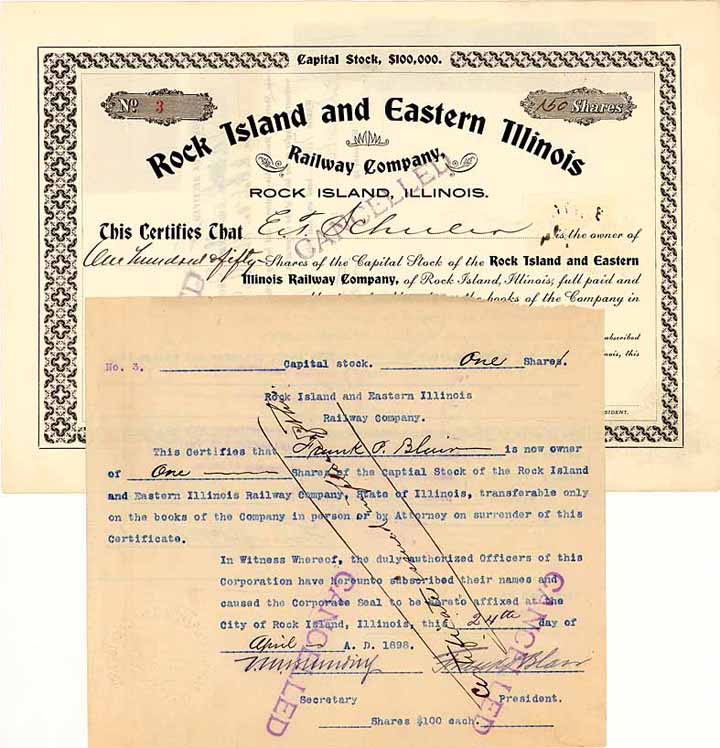 Capital Stock, $100,000.
No 3
150 Shares
Rock Island and Eastern Illinois
Railway Company,
ROCK ISLAND, ILLINOIS.
CANCELLED
This Certifies That E. T. Schuler is the owner of
One hundred & fifty Shares of the Capital Stock of the Rock Island and Eastern
Illinois Railway Company, of Rock Island, Illinois; full paid and
the books of the Company in
subscribed
this
PRESIDENT.
No. 3. Capital stock. One Share.
Rock Island and Eastern Illinois
Railway Company.
This Certifies that Frank P. Blair is now owner
of One Shares of the Captial Stock of the Rock Island
and Eastern Illinois Railway Company, State of Illinois, transferable only
on the books of the Company in person or by Attorney on surrender of this
Certificate.
In Witness Whereof, the duly authorized Officers of this
Corporation have hereunto subscribed their names and
caused the Corporate Seal to be hereto affixed at the
City of Rock Island, Illinois, this 24th day of
April A. D. 1898.
Frank P. Blair
Secretary President.
Shares $100 each.
CANCELLED
CANCELLED